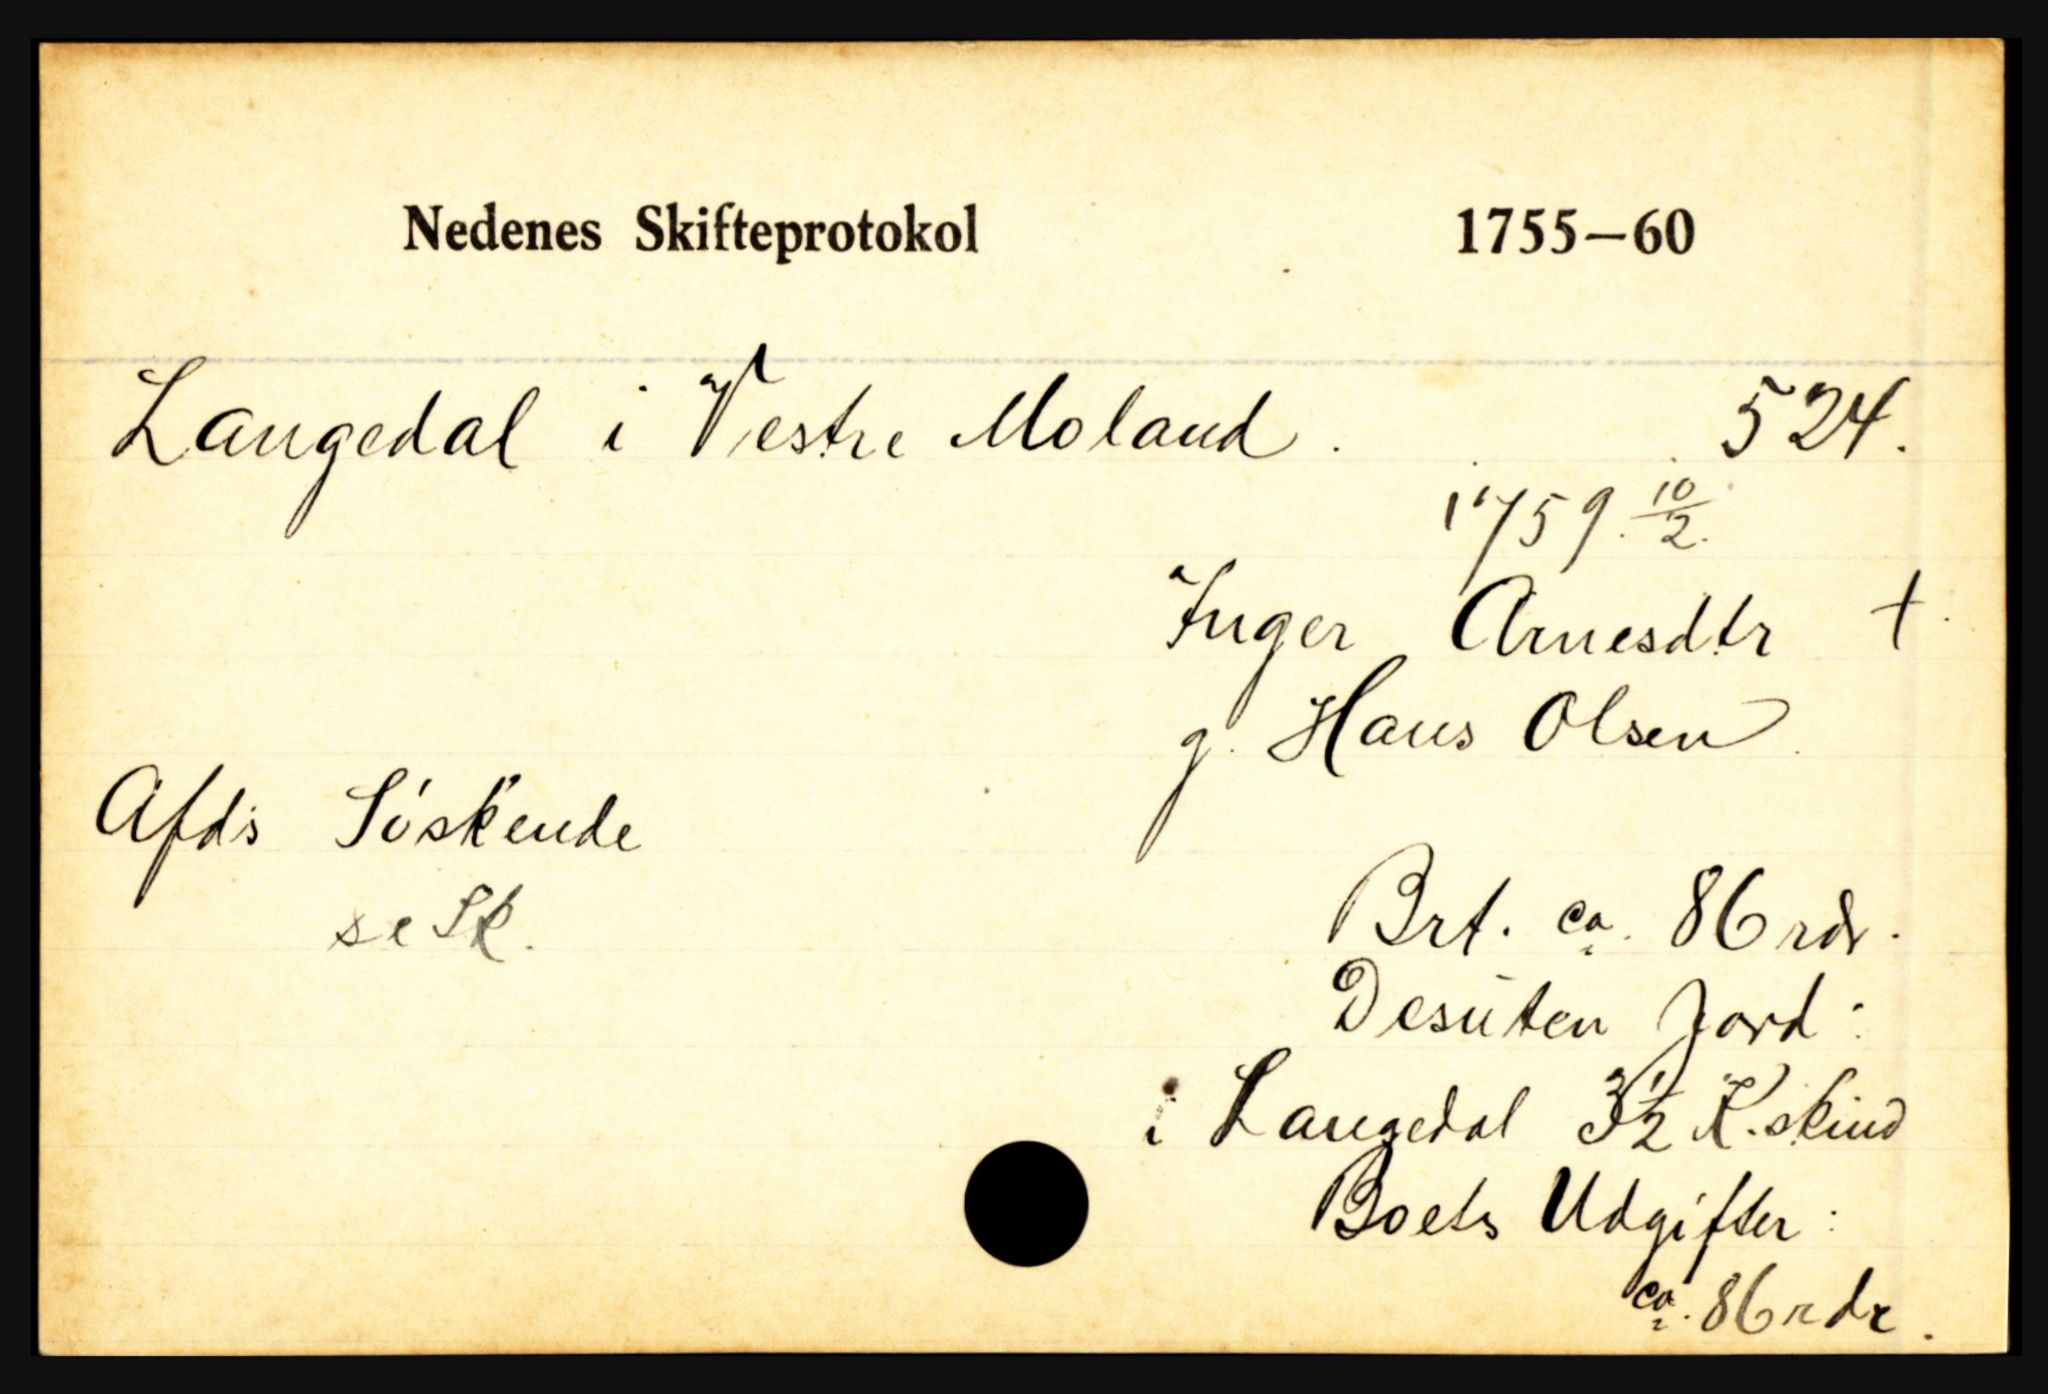 Nedenes Skifteprotokol 1755—60
Langedal i Vestre Moland. 524.
1759. 10/2.
Inger Arnesdtr †
g. Hans Olsen
Afd's Söskende
se Sk.
Brt. ca. 86 rdr.
Desuten Jord:
i Langedal 3 1/2 K.skind
Boets Udgifter:
ca. 86 rdr.